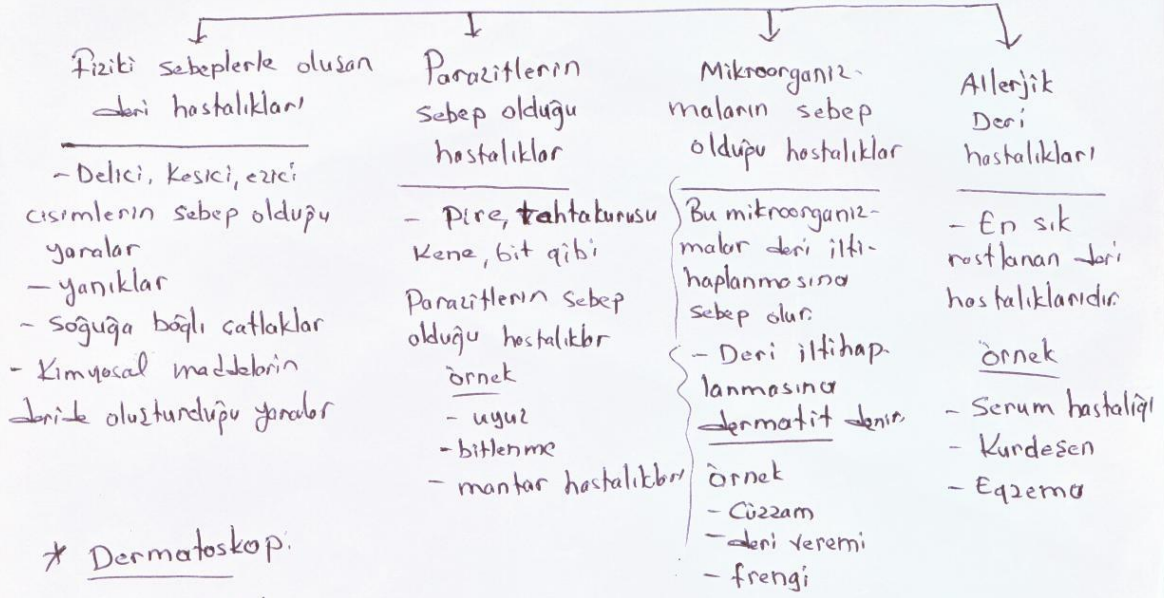 Fiziki sebeplerle oluşan
deri hastalıkları
- Delici, kesici, ezici
cisimlerin sebep olduğu
yaralar
- yanıklar
- Soğuğa bağlı çatlaklar
- Kimyasal maddelerin
deride oluşturduğu yaralar
Parazitlerin
sebep olduğu
hastalıklar
- Pire, tahtakurusu
Kene, bit gibi
Parazitlerin sebep
olduğu hastalıklar
örnek
- uyuz
- bitlenme
- mantar hastalıkları
Mikroorganiz-
maların sebep
olduğu hastalıklar
Bu mikroorganiz-
malar deri ilti-
haplanmasına
sebep olur.
- Deri iltihap-
lanmasına
dermatit denir.
örnek
- Cüzzam
- deri veremi
- frengi
Allerjik
Deri
hastalıkları
- En sık
rastlanan deri
hastalıklarıdır.
örnek
- Serum hastalığı
- Kurdeşen
- Egzema
* Dermatoskop: